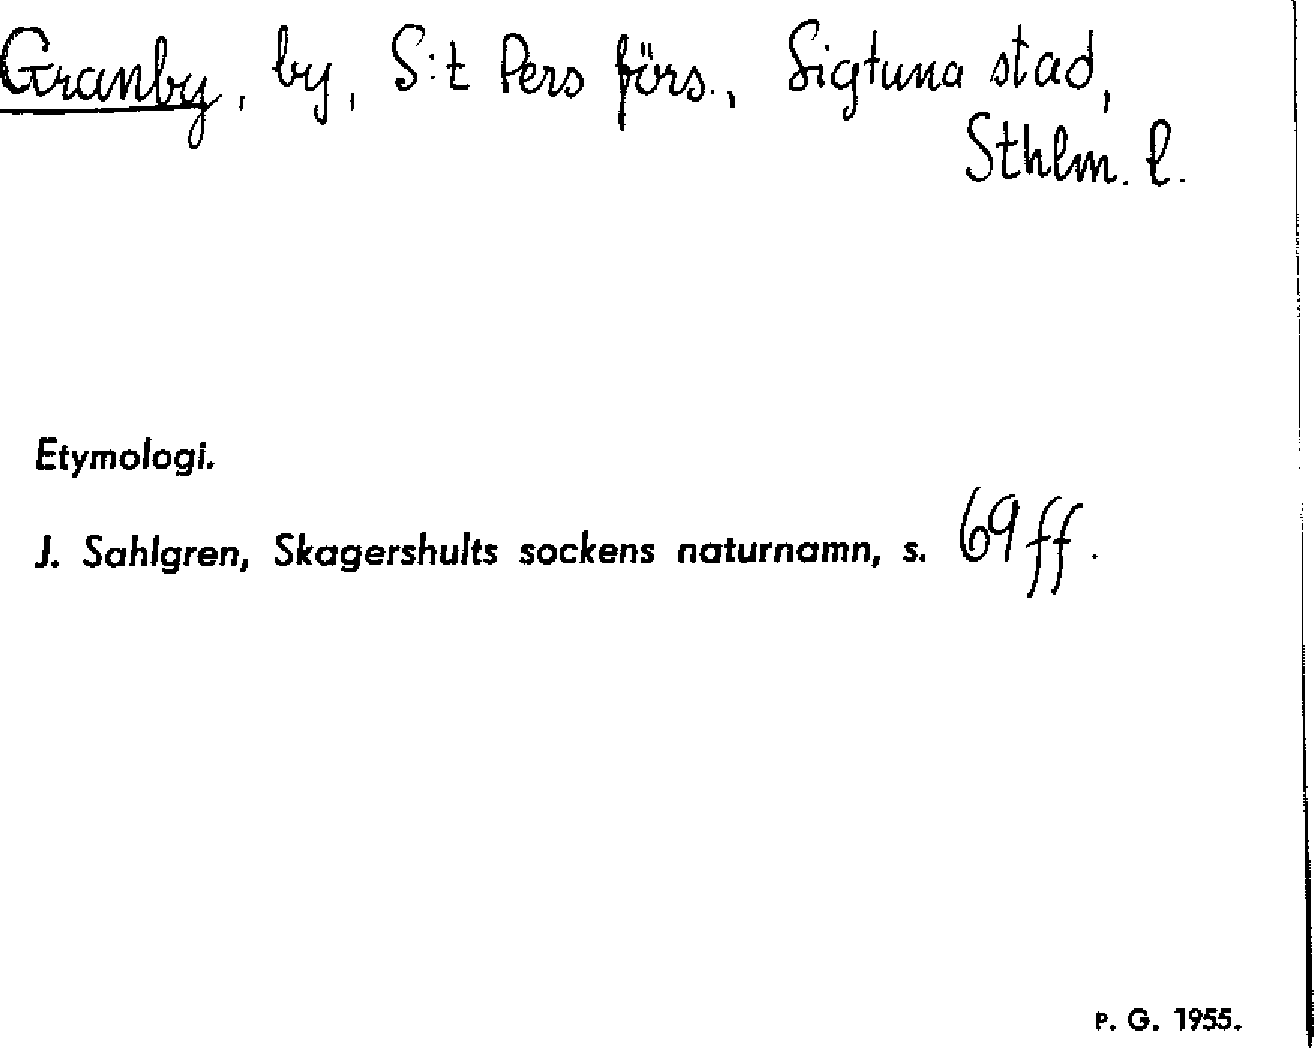 Granby, by, S:t Pers förs., Sigtuna stad,
Sthlm. l.
Etymologi.
J. Sahlgren, Skagershults sockens naturnamn, s. 69 ff.
P. G. 1955.